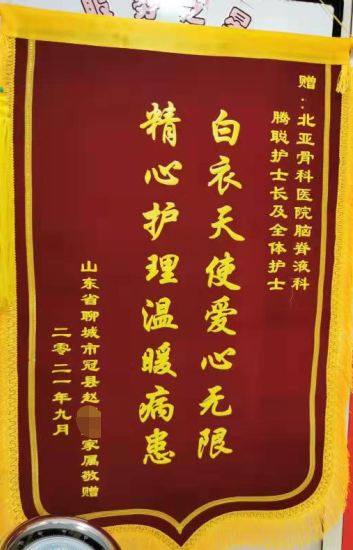 服务之星
赠：北亚骨科医院脑脊液科
腾聪护士长及全体护士
白衣天使爱心无限
精心护理温暖病患
山东省聊城市冠县赵家属敬赠
二零二一年九月